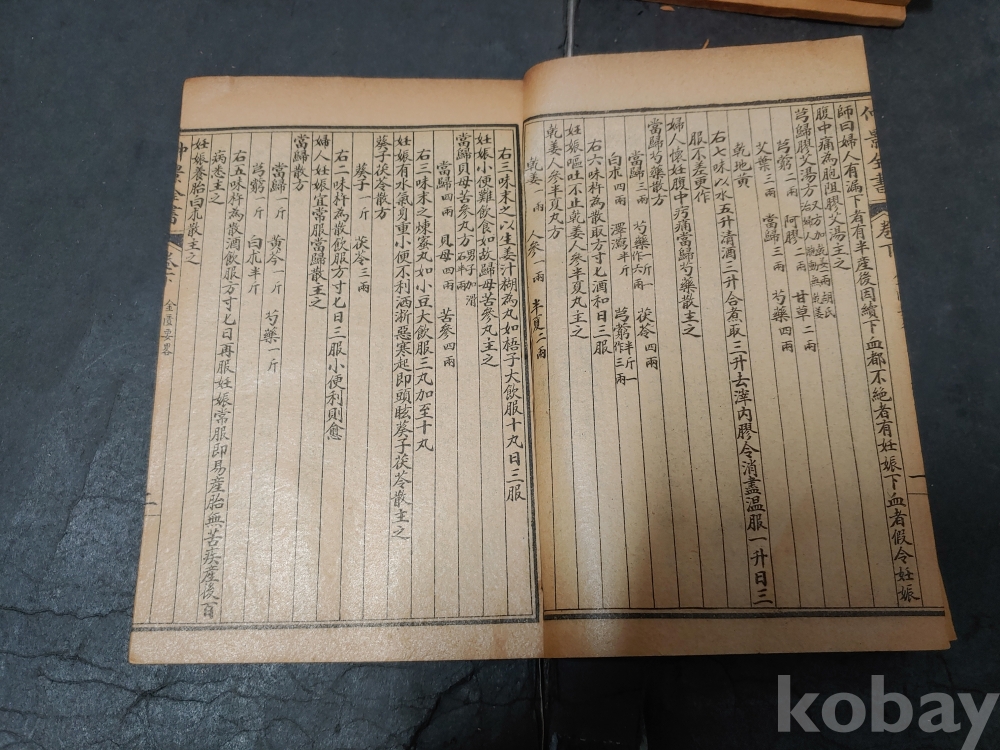 仲景全書 卷下
師曰婦人有漏下者有半産後因續下血都不絶者有妊娠下血者假令妊娠
腹中痛為胞阻膠艾湯主之
芎歸膠艾湯方
芎窮二兩 阿膠二兩 甘草二兩
艾葉三兩 當歸三兩 芍藥四兩
乾地黄
右七味以水五升清酒三升合煮取三升去滓內膠令消盡温服一升日三
服不差更作
婦人懷妊腹中㽲痛當歸芍藥散主之
當歸芍藥散方
當歸三兩 芍藥一斤 茯苓四兩
白朮四兩 澤瀉半斤 芎窮半斤一作三兩
右六味杵為散取方寸匕酒和日三服
妊娠嘔吐不止乾姜人參半夏丸主之
乾姜人參半夏丸方
乾姜 兩 人參一兩 半夏二兩
右三味末之以生姜汁糊為丸如梧子大飲服十丸日三服
妊娠小便難飲食如故歸母苦參丸主之
當歸貝母苦參丸方 男子加滑石半兩
當歸四兩 貝母四兩 苦參四兩
右三味末之煉蜜丸如小豆大飲服三丸加至十丸
妊娠有水氣身重小便不利洒淅惡寒起即頭眩葵子茯苓散主之
葵子茯苓散方
葵子一斤 茯苓三兩
右二味杵為散飲服方寸匕日三服小便利則愈
婦人妊娠宜常服當歸散主之
當歸散方
當歸一斤 黄芩一斤 芍藥一斤
芎窮一斤 白朮半斤
右五味杵為散酒飲服方寸匕日再服妊娠常服即易産胎無苦疾産後百
病悉主之
妊娠養胎白朮散主之
金匱要畧
二
kobay